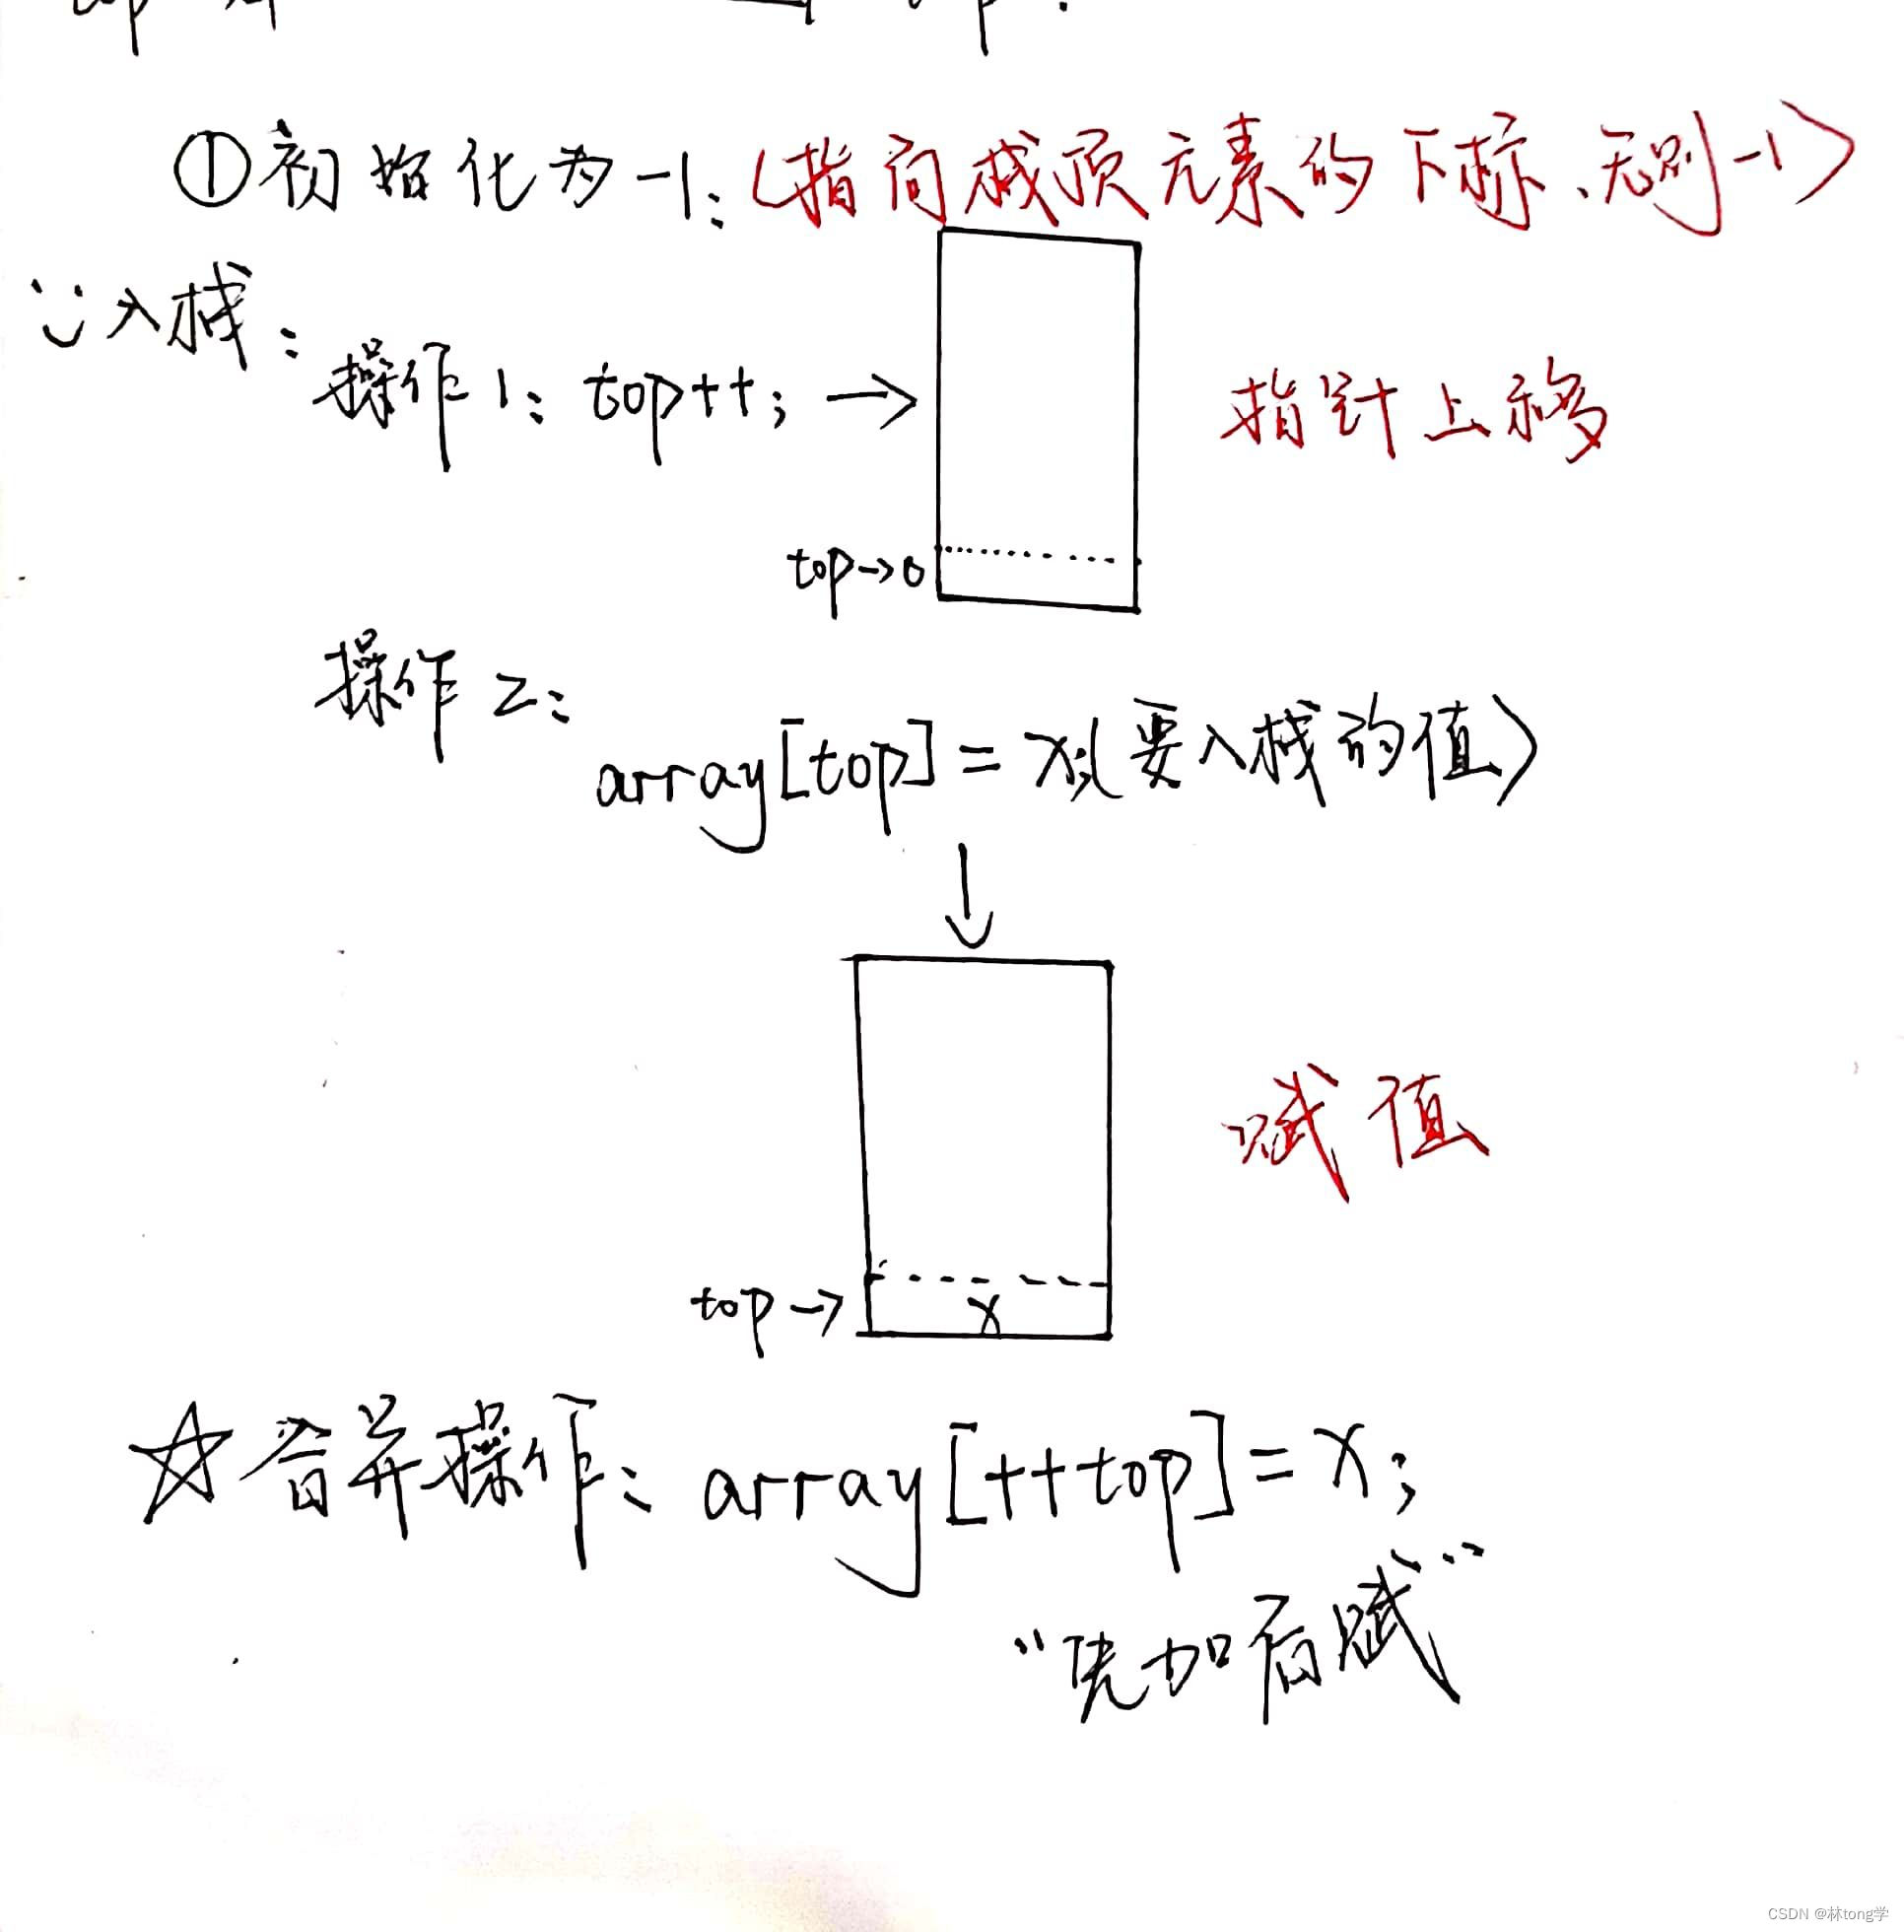 ①初始化为-1:(指向栈顶元素的下标、无则-1)
∵入栈:
操作1: top++; →
指针上移
top→0
操作2:
array[top]=x;(要入栈的值)
↓
赋值
top→
x
☆合并操作: array[++top]=x;
“先加后赋”
CSDN @林tong学